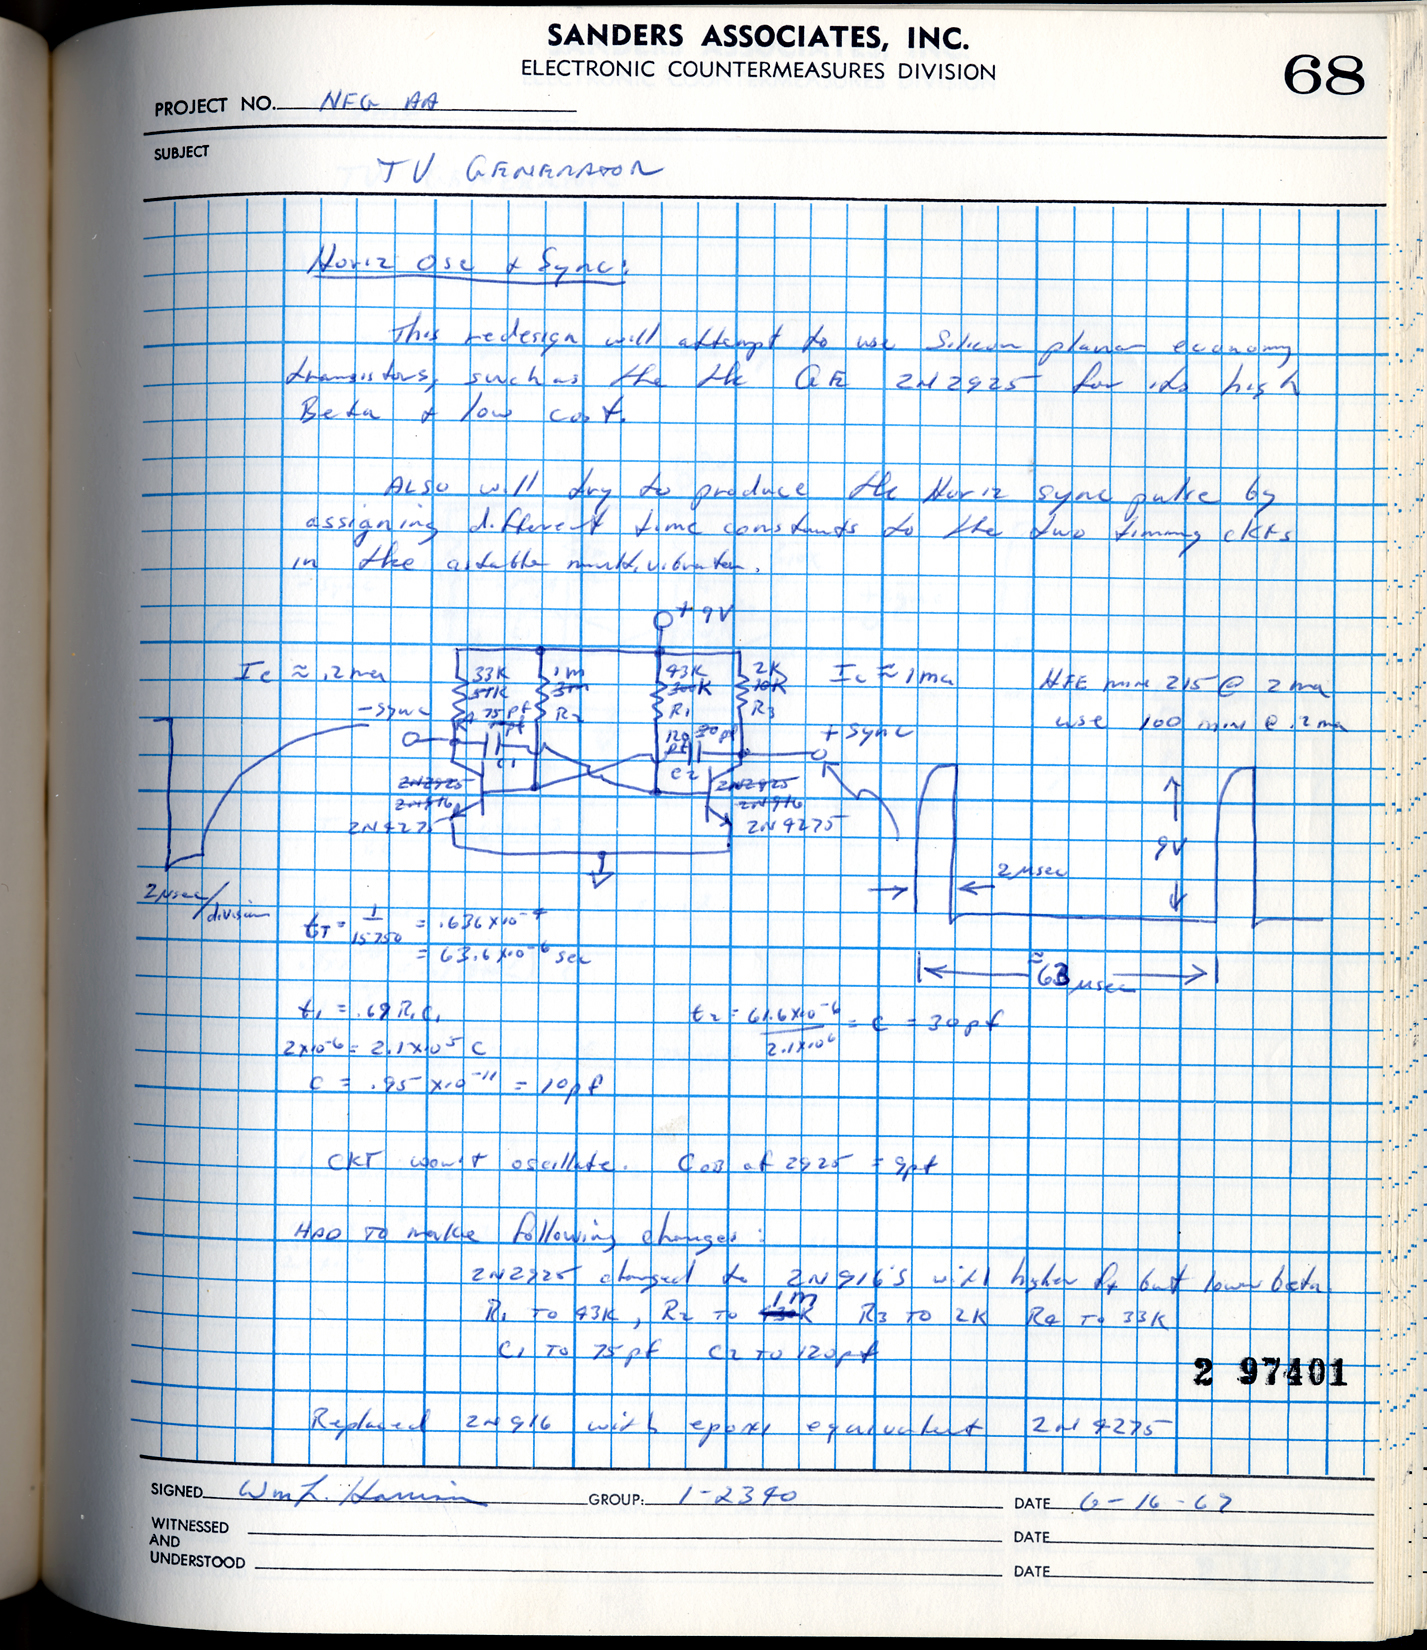 SANDERS ASSOCIATES, INC.
ELECTRONIC COUNTERMEASURES DIVISION
68
PROJECT NO. NEG AA
SUBJECT
TV GENERATOR
Horiz Osc & Sync:
This redesign will attempt to use Silicon planar economy
transistors, such as the the GE 2N2925 for its high
Beta & low cost.
Also will try to produce the Horiz sync pulse by
assigning different time constants to the two timing ckts
in the astable multivibrator.
+9V
Ic ≈ .2ma
33K
51K
1m
3m
R2
43K
K
R1
2K
10K
R3
Ic ≈ 1ma
HFE min 215 @ 2ma
use 100 min @ .2ma
-sync
75pf
pf
C1
120 pf
30pf
C2
+ Sync
2N2925
2N916
2N427
2N2925
2N916
2N4275
9V
2μsec
2μsec/division
tT = 1/15750 = .636x10-4
= 63.6x10-6 sec
≈63 μsec
t1 = .69 R1C1
t2 = 61.6x10-6/2.1x106 = C = 30pf
2x10-6 = 2.1x105 C
C = .95 x10-11 = 10pf
CKT won't oscillate. COB of 2925 = 9pf
HAD TO make following changes:
2N2925 changed to 2N916's with higher ft but lower beta.
R1 TO 43K, R2 TO 1m R3 TO 2K R4 TO 33K
C1 TO 75pf C2 TO 120pf
2 97401
Replaced 2N916 with epoxy equivalent 2N4275
SIGNED Wm L. Harrison GROUP: 1-2340 DATE 6-16-67
WITNESSED
AND
UNDERSTOOD
DATE
DATE